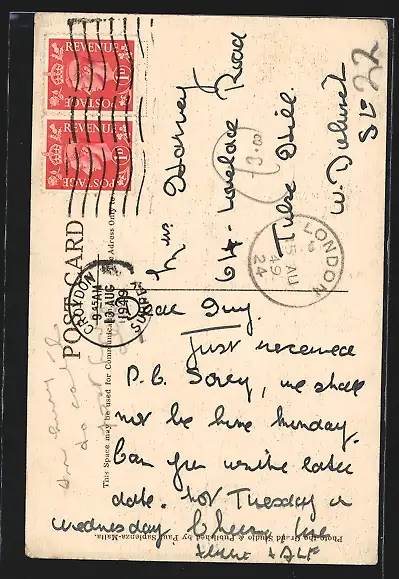 REVENUE
POSTAGE
1D
REVENUE
POSTAGE
1D
POST CARD
This Space may be used for Communication
The Adress Only to
CROYDON
SURREY
9 15 AM
AUG
1949
LONDON
15 AU
49
24
Harvey
64 Lovelace Road
Tulse Hill
W. Dulwich
SE 22
Just received
P.C. Sorry, we shall
not be here Monday.
Can you write later
date. Not Tuesday or
Wednesday. Cheers, love
ALF
Photo the Grand Studio & Published by Paul Sapienza-Malta.